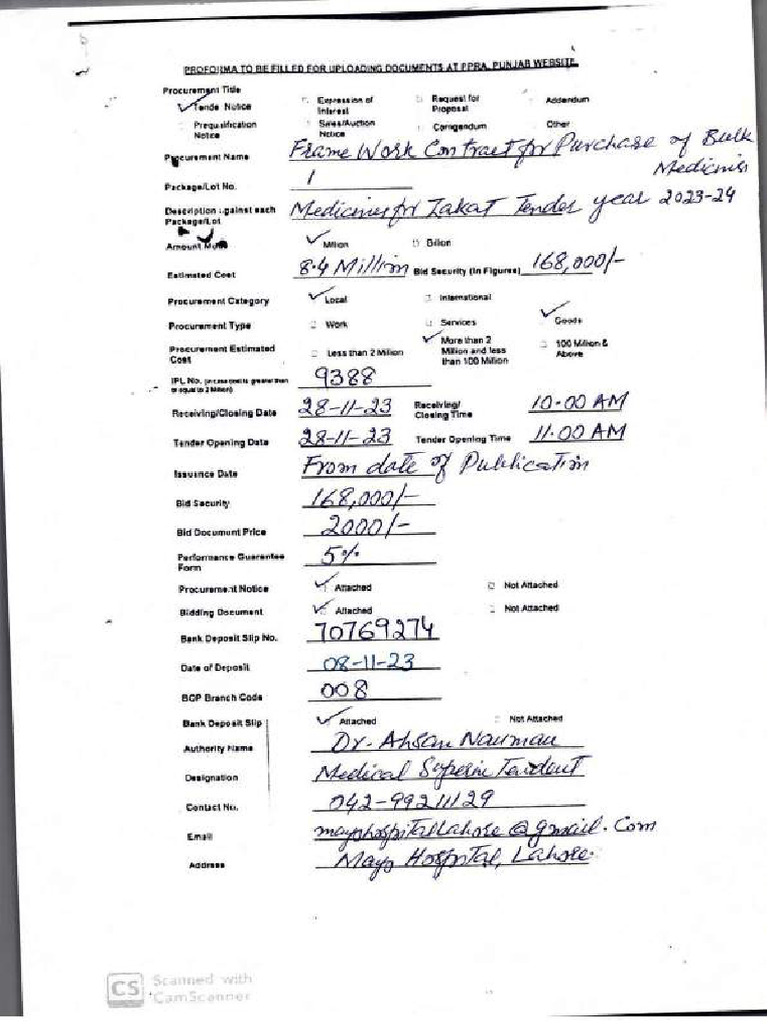 PROFORMA TO BE FILLED FOR UPLOADING DOCUMENTS AT PPRA, PUNJAB WEBSITE
Procurement Title
Tende Notice Expression of Interest Request for Proposal Addendum
Prequalification Notice Sales/Auction Notice Corrigendum Other
Procurement Name Frame Work Contract for Purchase of Bulk Medicines
Package/Lot No. 1
Description against each Package/Lot Medicines for Zakat Tender year 2023-24
Amount Million Billion
Estimated Cost 8.4 Million Bid Security (in Figures) 168,000/-
Procurement Category Local International
Procurement Type Work Services Goods
Procurement Estimated Cost Less than 2 Million More than 2 Million and less than 100 Million 100 Million & Above
IPL No. (in case cost is greater than or equal to 2 Million) 9388
Receiving/Closing Date 28-11-23 Receiving/Closing Time 10.00 AM
Tender Opening Date 28-11-23 Tender Opening Time 11.00 AM
Issuance Date From date of Publication
Bid Security 168,000/-
Bid Document Price 2000/-
Performance Guarantee Form 5%
Procurement Notice Attached Not Attached
Bidding Document Attached Not Attached
Bank Deposit Slip No. 70769274
Date of Deposit 08-11-23
BOP Branch Code 008
Bank Deposit Slip Attached Not Attached
Authority Name Dr. Ahsan Nauman
Designation Medical Superintendent
Contact No. 042-99211129
Email mayohospitallahore@gmail.Com
Address Mayo Hospital, Lahore.
CS Scanned with
CamScanner